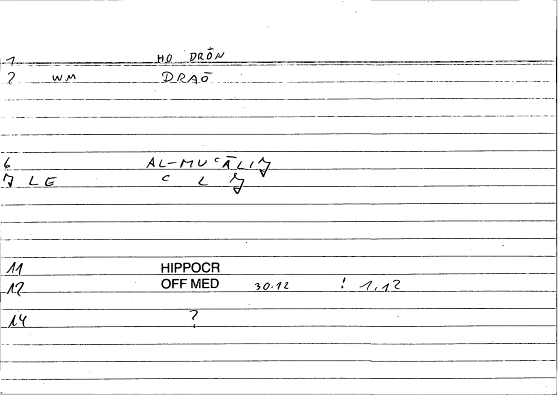 1 HO DRŌN
2 WM DRAŌ
6 AL-MUʿĀLIǦ
7 LE ʿ L Ǧ
11 HIPPOCR
12 OFF MED 30.12 ! 1,12
14 ?